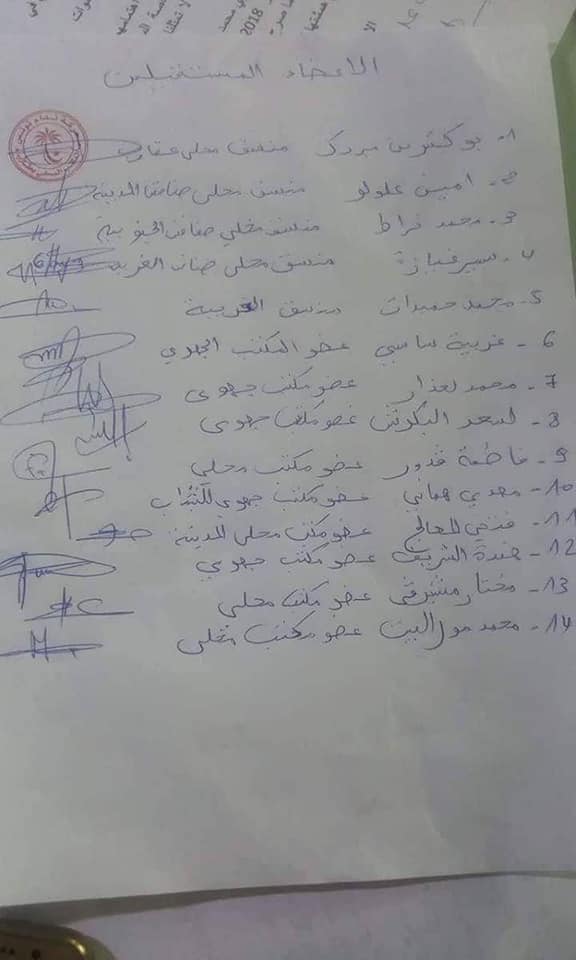 2018
محمد
الأعضاء المستقيلين
1- بوكثير بن مبروك منسق محلي عقارب
2- امين علولو منسق محلي صفاقس المدينة
3- محمد قراط منسق محلي صفاقس الجنوبية
4- سمير منسق محلي صفاقس الغربية
5- محمد حميدات منسق الغريبة
6- عربية ساسي عضو المكتب الجهوي
7- محمد لعذار عضو مكتب جهوي
8- لسعد البكوش عضو مكتب جهوي
9- فاطمة قدور عضو مكتب محلي
10- مهدي هماني عضو مكتب جهوي للشباب
11- فتحي المعالج عضو مكتب محلي المدينة
12- هندة الشريف عضو مكتب جهوي
13- مختار مشرقي عضو مكتب محلي
14- محمد البيت عضو مكتب محلي